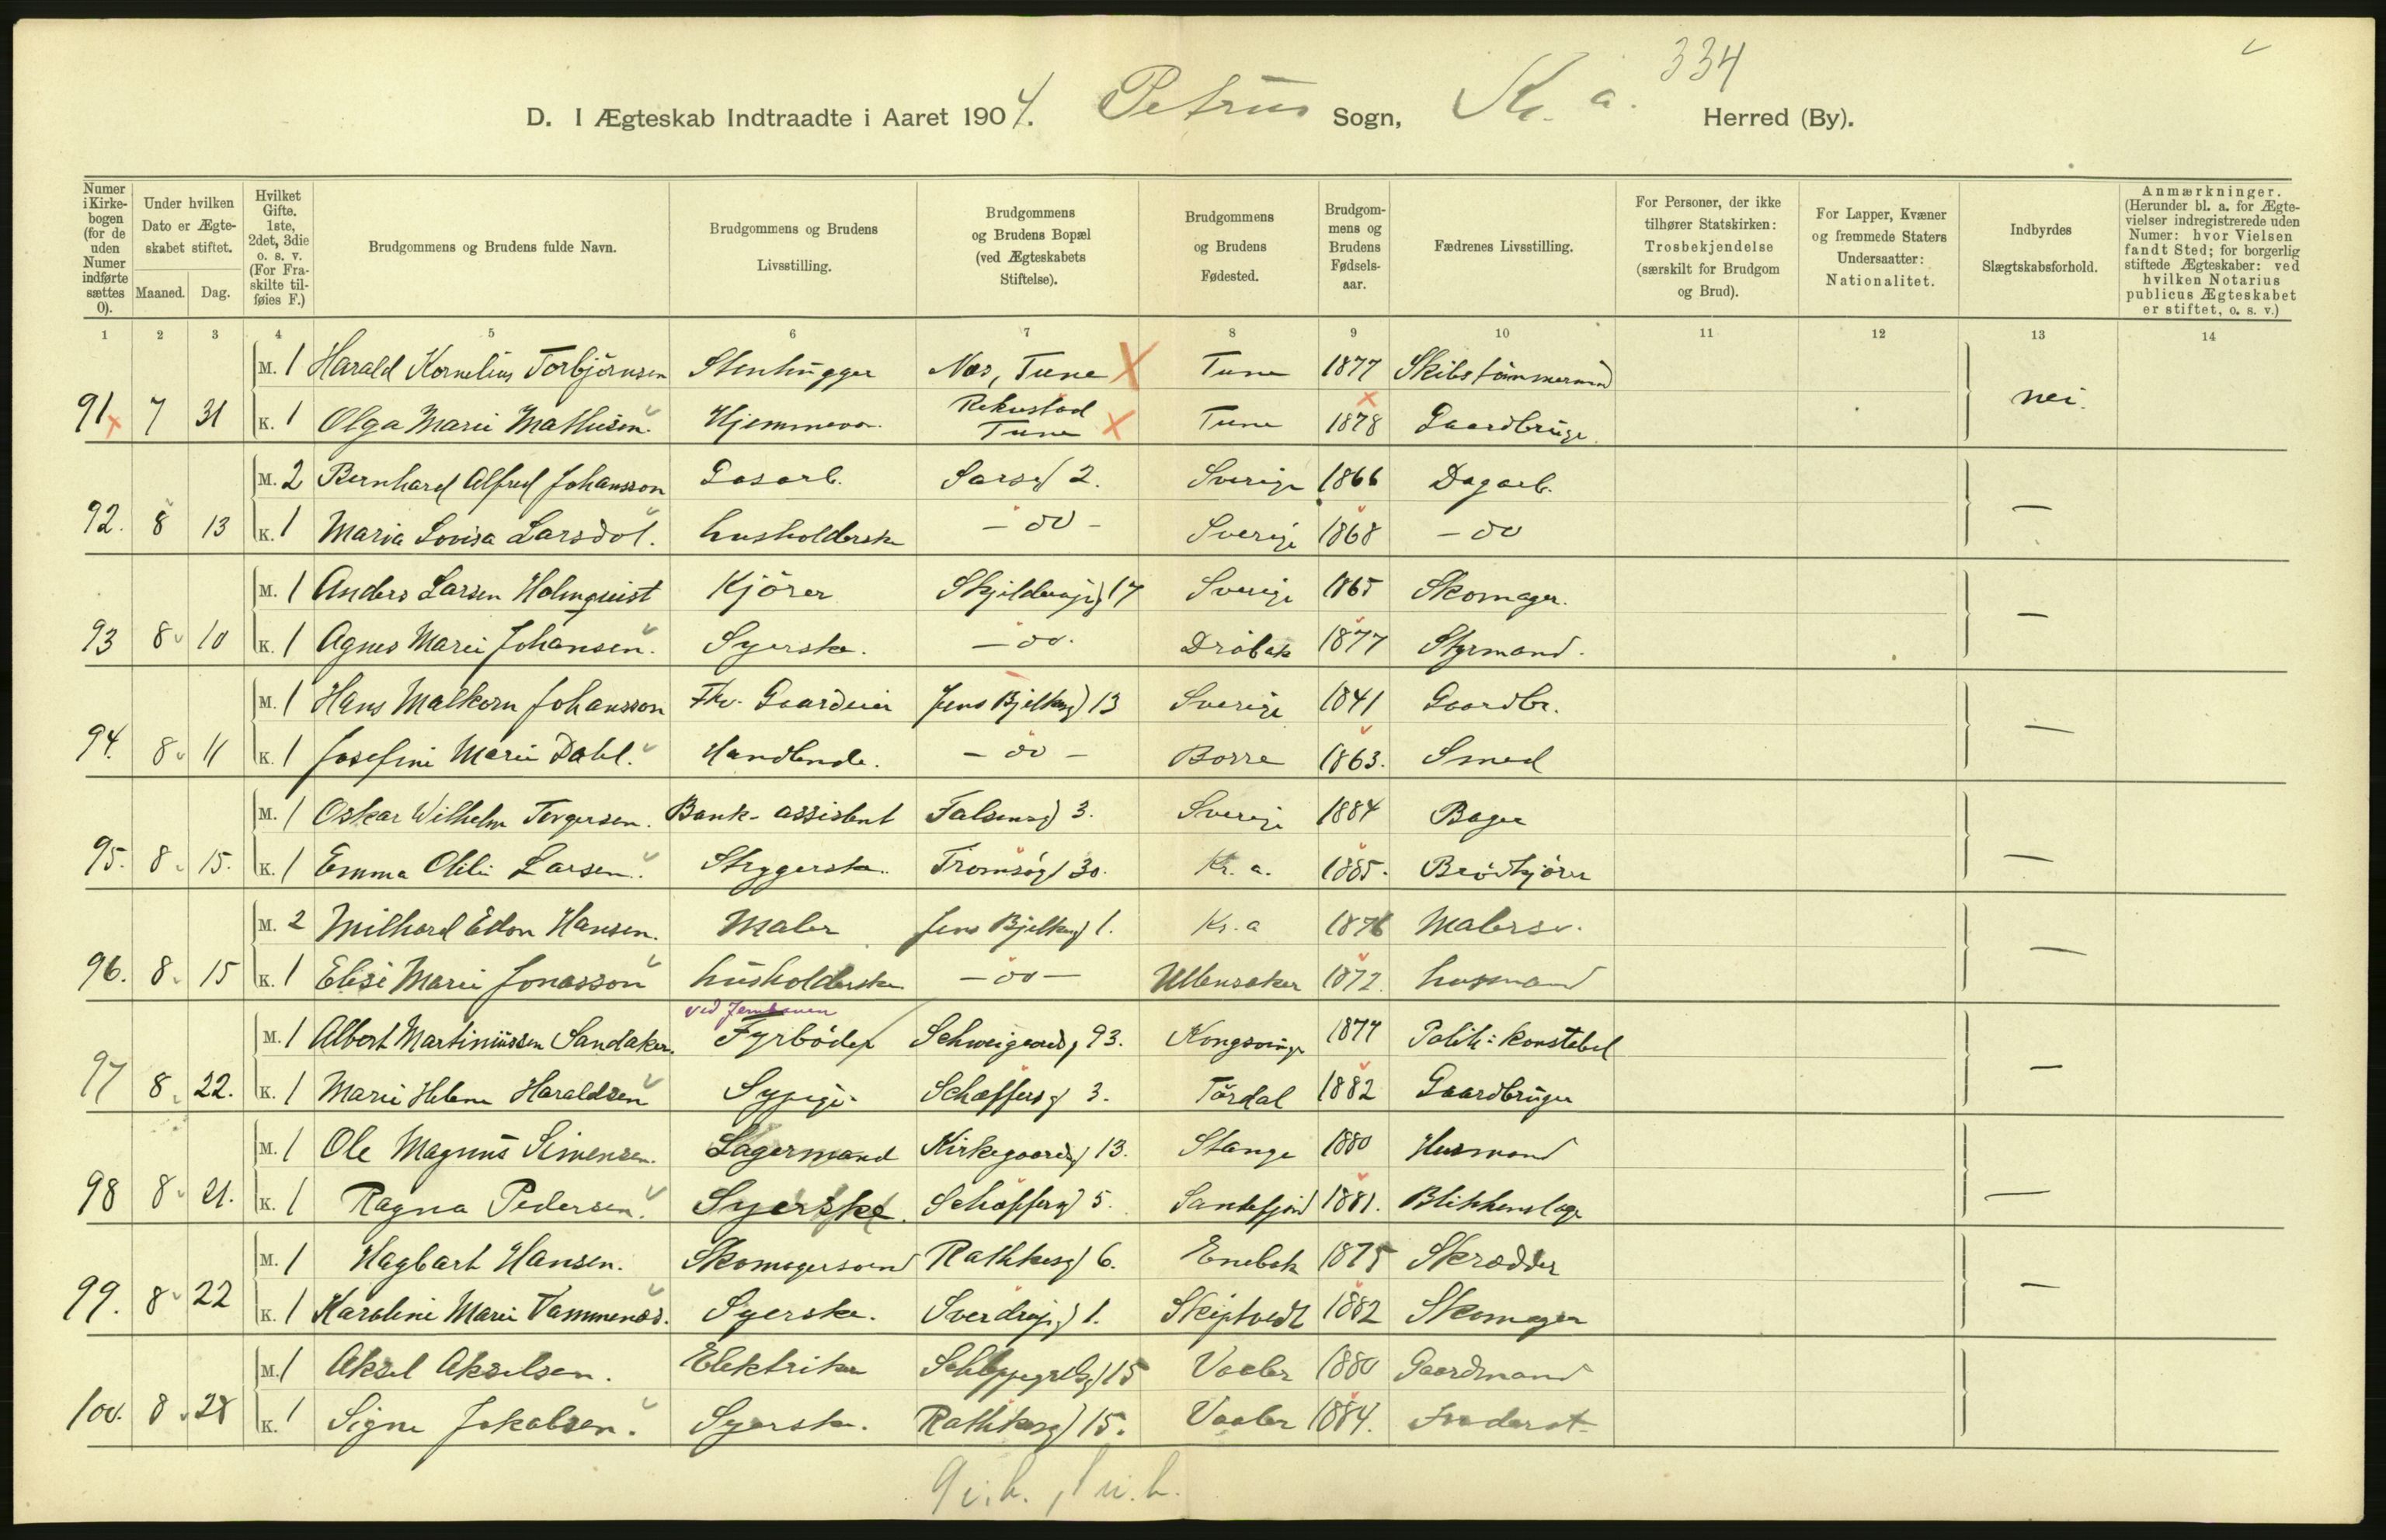 334
D. I Ægteskab Indtraadte i Aaret 1904. Petrus Sogn, Kr. a. Herred (By).
Numer i Kirkebogen (for de uden Numer indførte sættes 0).
Under hvilken Dato er Ægteskabet stiftet.
Maaned. Dag.
Hvilket Gifte. 1ste, 2det, 3die o. s. v. (For Fraskilte tilføies F.)
Brudgommens og Brudens fulde Navn.
Brudgommens og Brudens Livsstilling.
Brudgommens og Brudens Bopæl (ved Ægteskabets Stiftelse).
Brudgommens og Brudens Fødested.
Brudgommens og Brudens Fødselsaar.
Fædrenes Livsstilling.
For Personer, der ikke tilhører Statskirken: Trosbekjendelse (særskilt for Brudgom og Brud).
For Lapper, Kvæner og fremmede Staters Undersaatter: Nationalitet.
Indbyrdes Slægtskabsforhold.
Anmærkninger. (Herunder bl. a. for Ægtevielser indregistrerede uden Numer: hvor Vielsen fandt Sted; for borgerlig stiftede Ægteskaber: ved hvilken Notarius publicus Ægteskabet er stiftet, o. s. v.)
1 2 3 4 5 6 7 8 9 10 11 12 13 14
M. 1 Harald Kornelius Torbjörnsen Stenhugger Nes, Tune Tune 1877 Skibstömmermd
91 7 31 K. 1 Olga Marie Mathisen Hjemmevær. Tune Tune 1878 Gaardbruger nei.
M. 2 Bernhard Alfred Johansson Gasarb. Sarsg 2. Sverige 1866 Dagarb.
92. 8 13 K. 1 Maria Lovisa Larsdot. husholderske — do — Sverige 1868 — do —
M. 1 Anders Larsen Holmquist Kjörer 17 Sverige 1865 Skomager.
93 8 10 K. 1 Agnes Marie Johansen. Syerske. — do. Dröbak 1877 Styrmand. —
M. 1 Hans Malkorn Johansson Fhv. Gaardeier Jens Bjelkesg 13 Sverige 1841 Gaardbr.
94. 8 11 K. 1 Josefine Marie Dahl. Handlende. — do — Borre 1863. Smed —
M. 1 Oskar Wilhelm Torgersen. Bank-assistent Falsensg 3. Sverige 1884 Bager
95. 8 15. K. 1 Emma Olilie Larsen. Strygerske. Tromsög 30. Kr. a. 1885. Brödkjörer —
M. 2 Milhard Edon Hansen. Maler Jens Bjelkesg 1. Kr. a 1876 Malersv.
96. 8 15 K. 1 Elise Marie Jonasson husholderske — do — Ullensaker 1872. husmand —
ved Jernbanen
M. 1 Albert Martiniussen Sandaker. Fyrböder Schweigaardsg 93. Kongsvinger 1877 Politi-konstabel
97 8 22. K. 1 Marie Helene Haraldsen Sypige. Schæffersg 3. Tördal 1882 Gaardbruger —
M. 1 Ole Magnus Simensen. Lagermand Kirkegaardsg 13. Stange 1880 Husmand
98 8 21. K. 1 Ragna Pedersen. Syerske. Schæffersg 5. Sandefjord 1881. Blikkenslager —
M. 1 Hagbart Hansen. Skomagersvend Rathkesg 6. Enebak 1875 Skrædder
99. 8 22 K. 1 Karoline Marie Tammenæs. Syerske. Sverdrupsg 1. Skiptvedt 1882 Skomager —
M. 1 Aksel Akselsen. Elektriker Schleppegrelsg 15 Vaaler 1880 Gaardmand
100. 8 28 K. 1 Signe Jakobsen. Syerske. Rathkesg 15. Vaaler 1884.